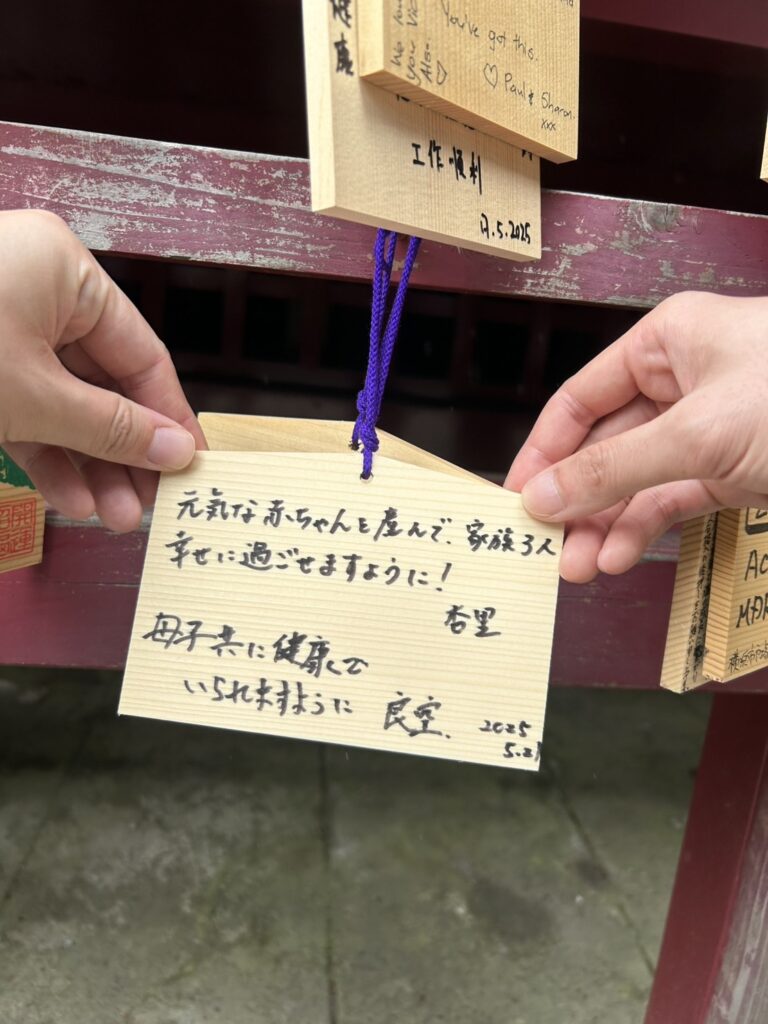 健康
We love
you Vic
Also
You've got this.
♡ Paul & Sharon.
xxx
工作順利
17.5.2025
元気な赤ちゃんを産んで、家族3人
幸せに過ごせますように!
杏里
母子共に健康で
いられますように 良空.
2025
5.21
開運